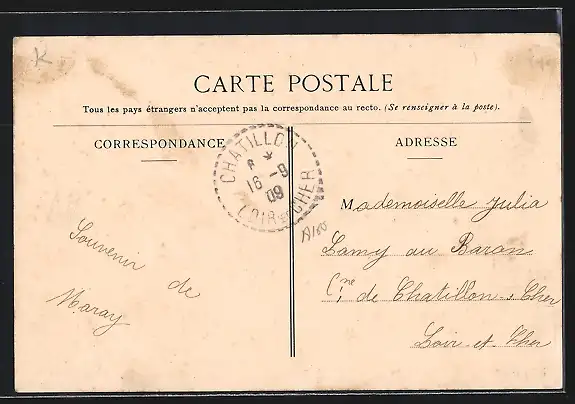 K
CARTE POSTALE
Tous les pays étrangers n'acceptent pas la correspondance au recto. (Se renseigner à la poste).
CORRESPONDANCE
ADRESSE
CHATILLON
16 -9
09
LOIR-ET-CHER
Souvenir de
Maray
Mademoiselle Julia
Lamy au Baron
Cne de Chatillon s. Cher
Loir-et-Cher